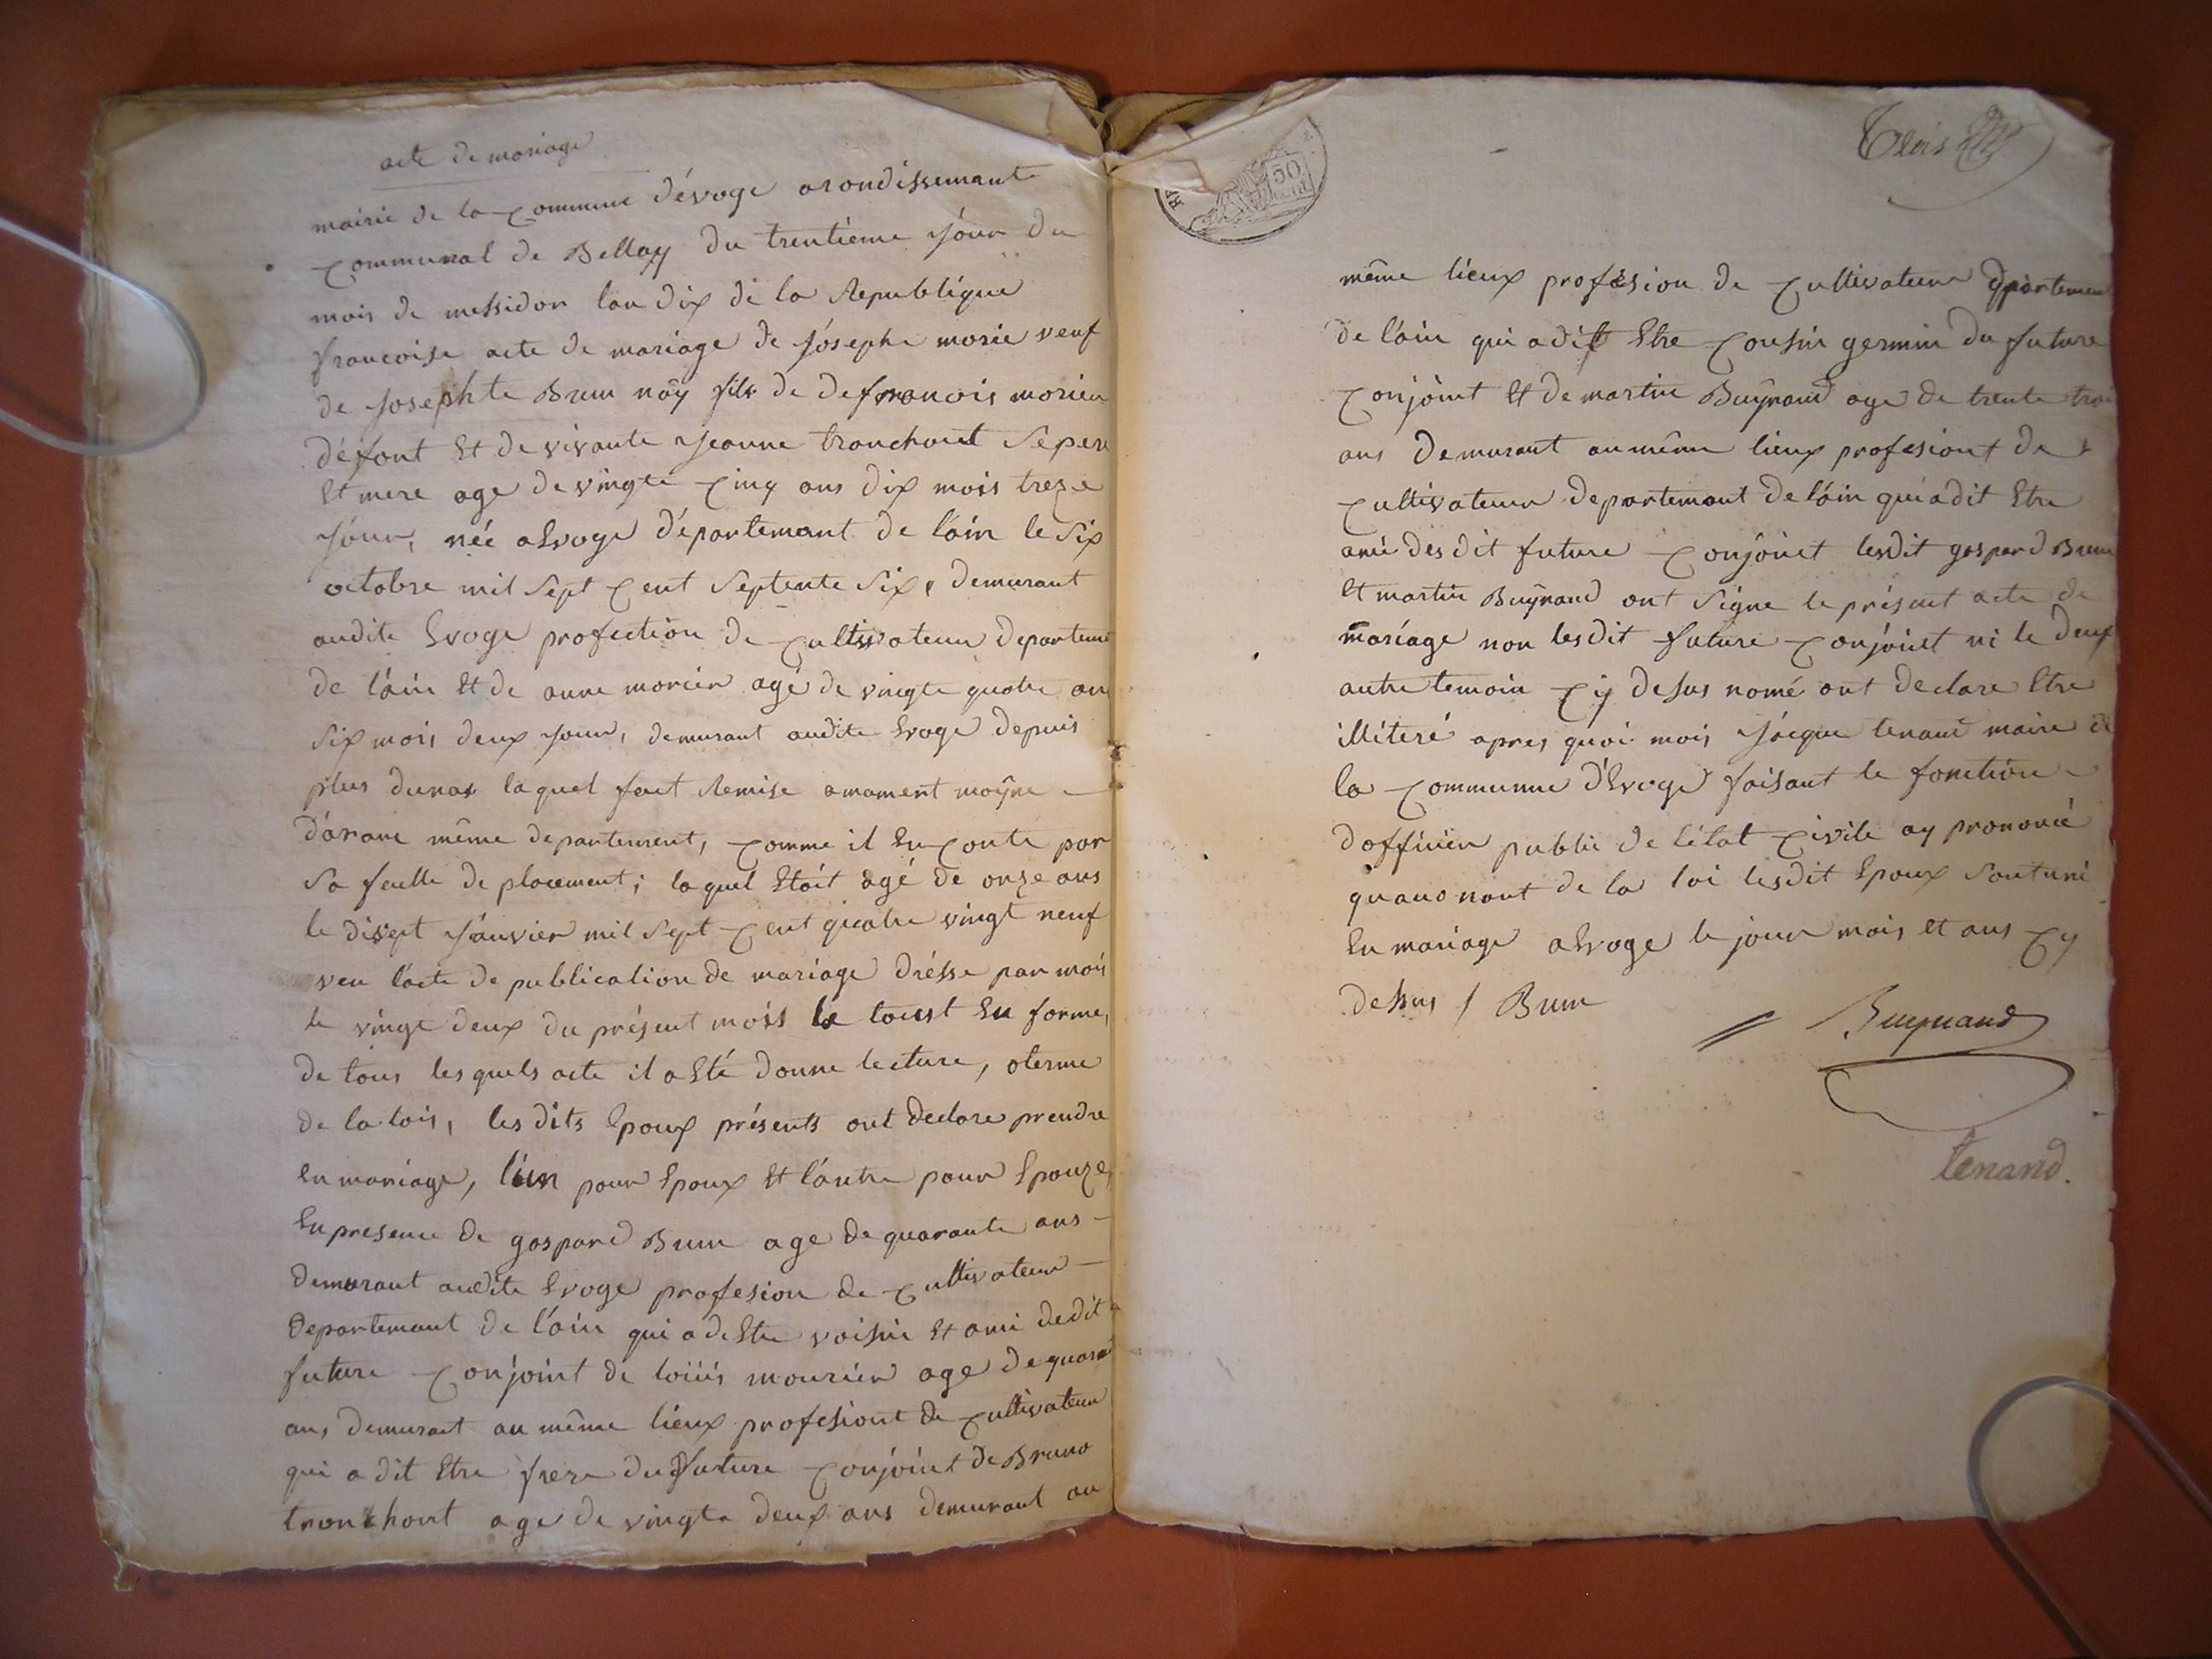 acte de mariage
mairie de la commune d'évoge arondissemante
communal de Bellay du trentieme jóur du
mois de messidor lan dix de la Republíque
francoise acte de mariage de jóseph morie veuf
de josephte Brun nóy fils de defrancois morier
défont Et de vivante jeanne tronchont se pere
Et mere age de vingte cinq ans dix mois treze
jóur, née a Evoge département de láin le six
octobre mil sept cent septente six, demurant
audite Evoge profection de cultivateur departeme
de láin Et de anne morier age de vingte quatre an
six mois deux jour, demurant audite Evoge depuis
plus dunas laquel fait Remise amament moÿne
dárane même departement, comme il En conte par
sa feulle de placement; laquel Etoit agé de onze ans
le disept jánvier mil sept cent quatre vingt neuf
veu lacte de publication de mariage drésse par mois
le vingt deux du présent mois le toust En forme,
de tous les quels acte il a Eté donne lecture, oterme
de la lois, les dits Epoux présents ont declare prendre
En mariage, l'un pour Epoux Et láutre pour Epouze,
En presence de gaspard Brun age de quarante ans
demurant audite Evoge profesion de cultivateur
departemant de láin qui a di Etre voisin Et ami dedit
future conjoint de loüis mourier age de quara
ans demurant au même lieux profesiont de cultivateur
qui a dit Etre frere du future conjóint de Bruno
tronchont age de vingte deux ans demurant au
même lieux profésion de cultivateur departemen
de láin qui a dit Etre cousin germin du future
conjóint Et de martin Buynand age de trente troi
ans demurant au même lieux profesiont de
cultivateur departemant de láin qui a dit Etre
ami des dit future conjóint lesdit gaspard Brun
Et martin Buynand ont signe le présent acte de
mariage non lesdit future conjóint ni le deux
autre temoin cy desus nomé ont declare Etre
illiteré apres quoi mois jácque tenand maire de
la commune d'Evoge faisant le fonction
dofficier public de létat civile ay prononcé
quauo nont de la loi lesdit Epoux sont uni
En mariage a Evoge le jour mois et ans cy
desus / Brun
Buynand
tenand.